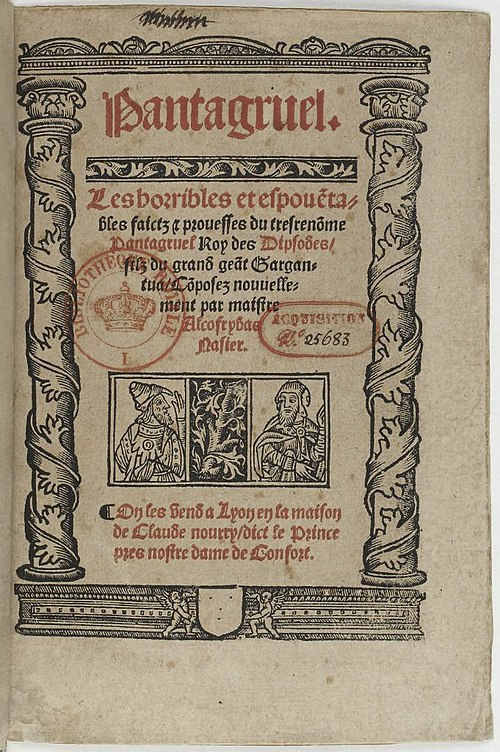 Pantagruel.
Les horribles et espouẽta-
bles faictz ⁊ prouesses du tresrenõme
Pantagruel Roy des Dipsodes/
filz du grand geãt Gargan-
tua/ Cõposez nouuelle-
ment par maistre
Alcofrybas
Nasier.
BIBLIOTHEQUE ROYALE
ACQUISITION
N.o 25683
¶ On les vend a Lyon en la maison
de Claude nourry/dict le Prince
pres nostre dame de Confort.